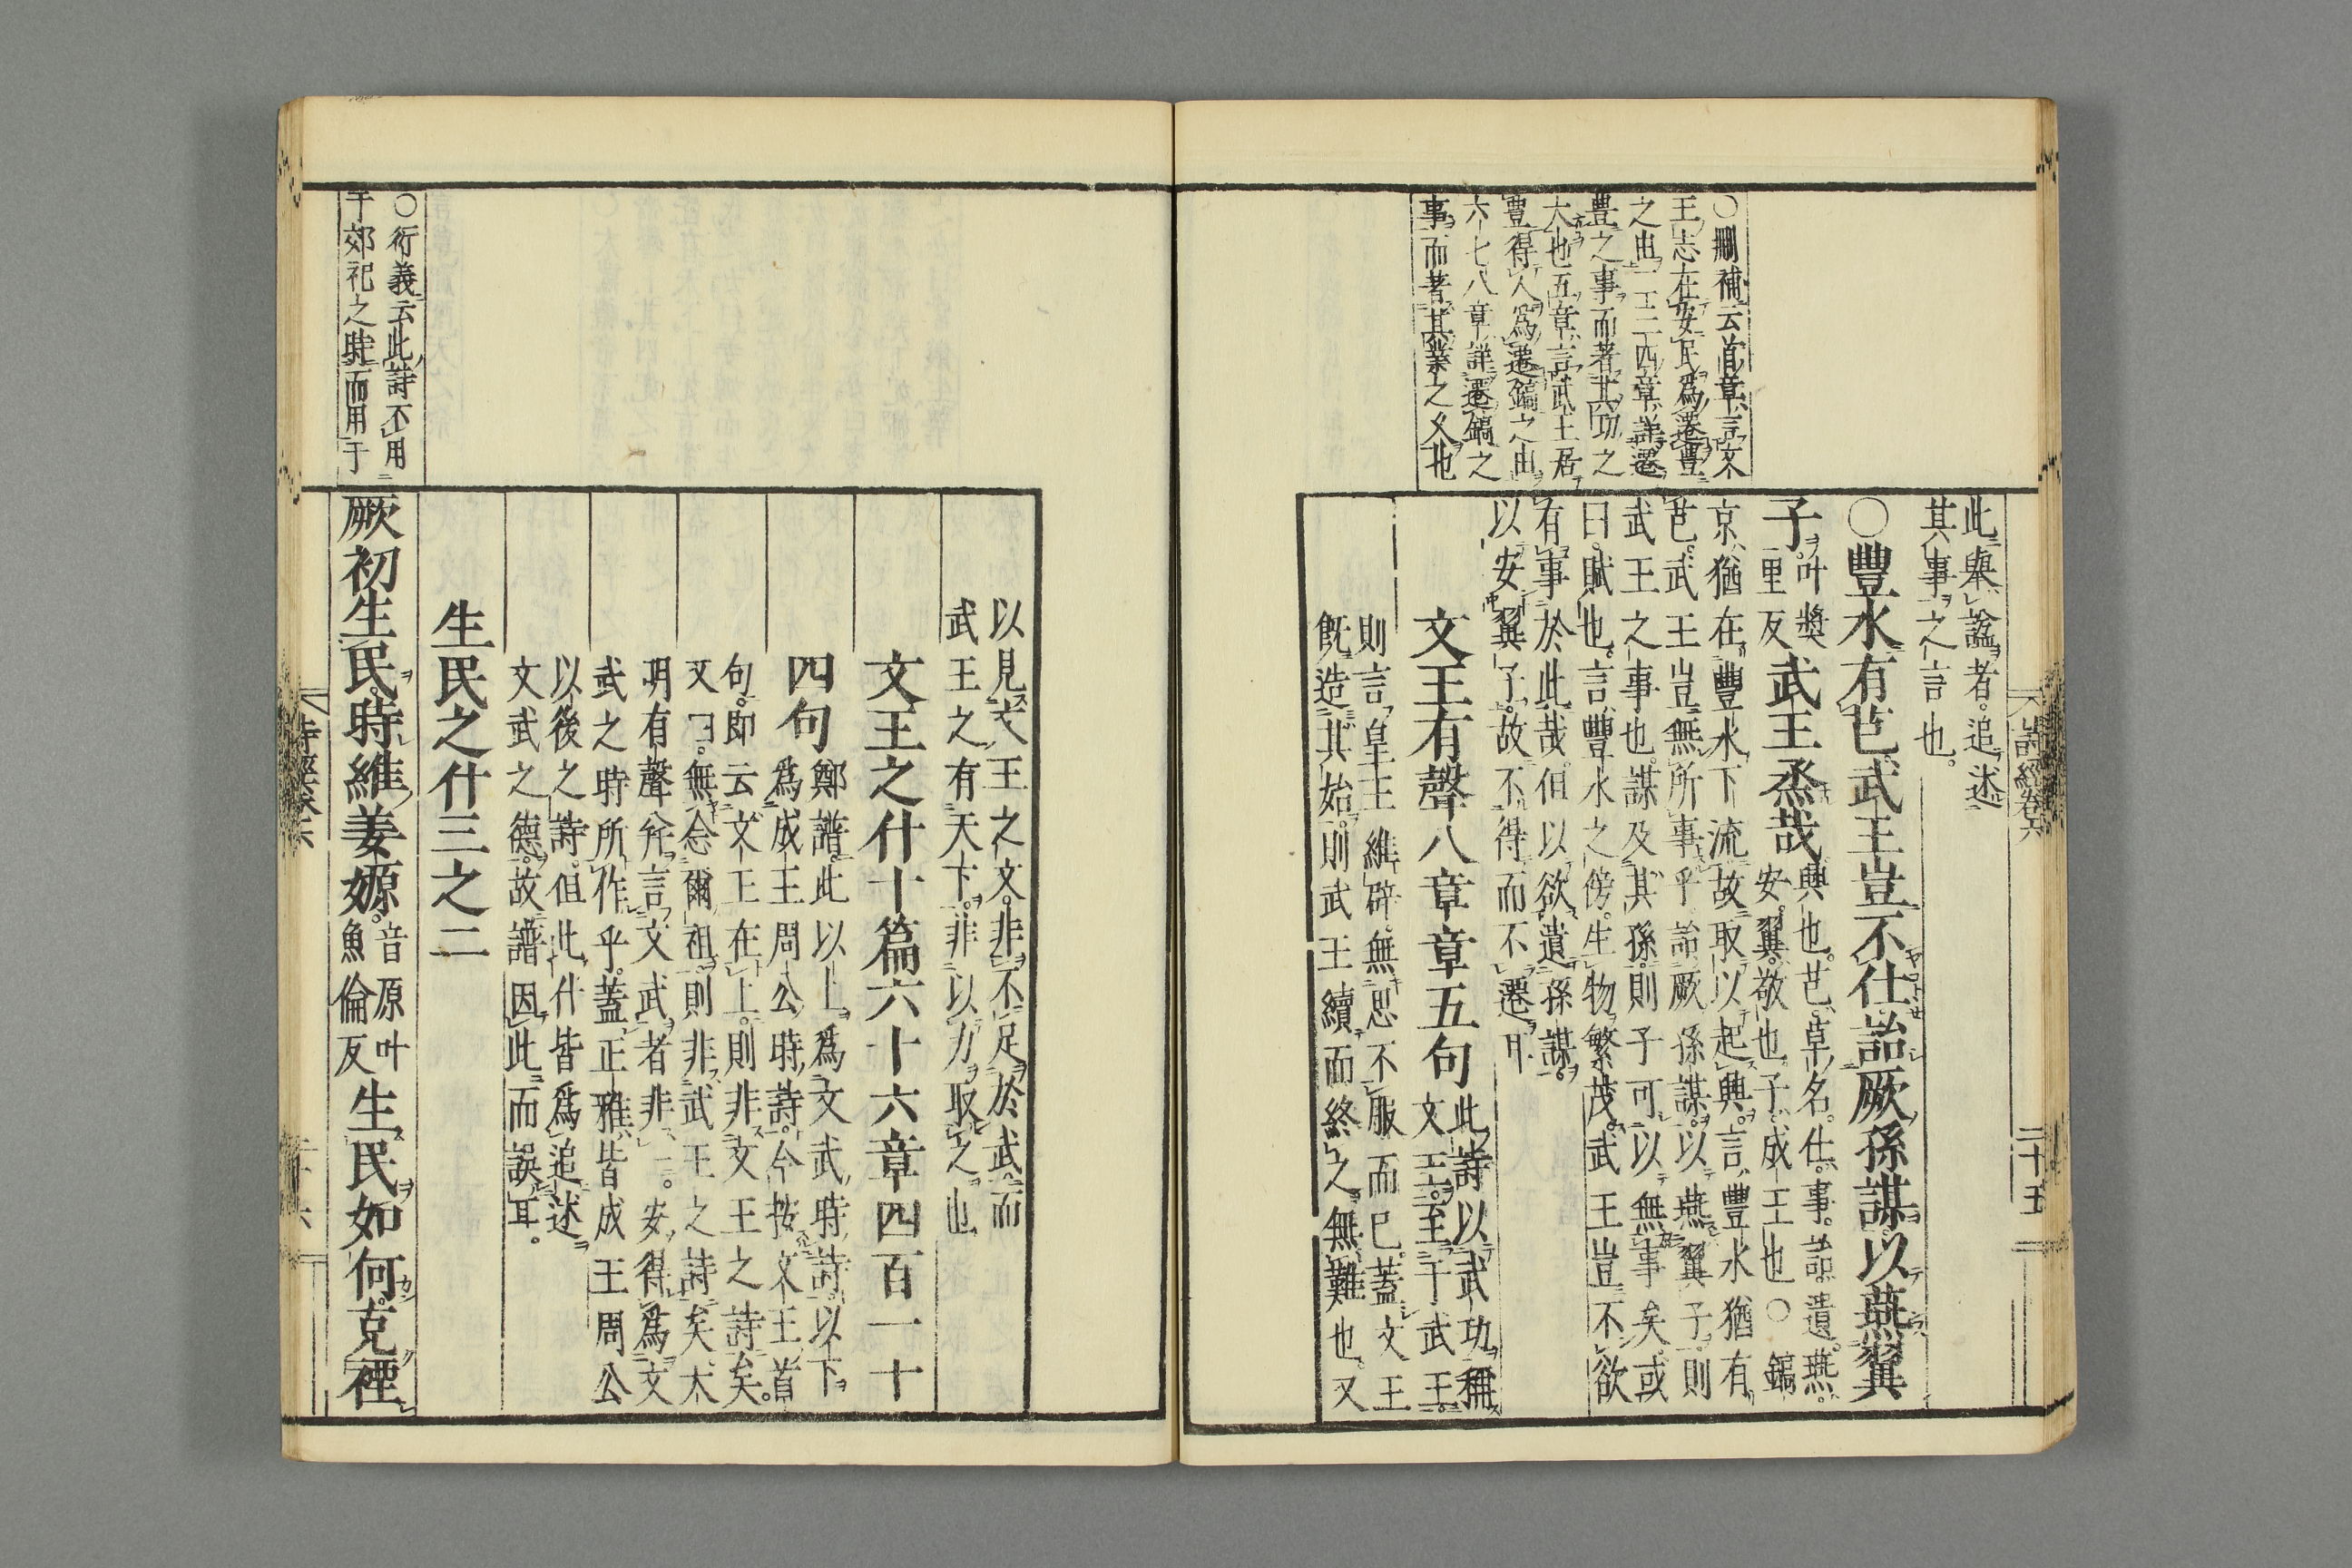 詩經卷六
二十五
○刪補云首章言文
王志在安民爲遷豐
之由二三四章詳遷
豊之事而著其功之
大也五章言武王居
豐得人爲遷鎬之由
六七八章詳遷鎬之
事而著其業之久也
此舉諡者追述
其事之言也。
○豐水有芑武王豈不仕詒厥孫謀以燕翼
子叶獎里反武王烝哉興也。芑草名。仕事。詒遺。燕安。翼敬也。子成王也○鎬
京猶在豐水下流故取以起興。言豐水猶有
芑。武王豈無所事乎詒厥孫謀。以燕翼子。則
武王之事也。謀及其孫。則子可以無事矣。或
曰。賦也。言豐水之傍。生物繁茂。武王豈不欲
有事於此哉。但以欲遺孫謀。
以安翼子。故不得而不遷耳
文王有聲八章章五句此詩以武功稱文王。至于武王。
則言皇王維辟。無思不服而已。蓋文王
旣造其始。則武王續而終之。無難也。又
以見文王之文。非不足於武。而
武王之有天下。非以力取之也
文王之什十篇六十六章四百一十
四句鄭譜此以上爲文武時詩。以下爲成王周公時詩。今按文王首
句。即云文王在上。則非文王之詩矣。
又曰。無念爾祖。則非武王之詩矣大
明有聲幷言文武者非一。安得爲文
武之時所作乎。蓋正雅皆成王周公
以後之詩。但此什皆爲追述
文武之德。故譜因此而誤耳。
生民之什三之二
○衍義云此詩不用
于郊祀之時而用于
厥初生民時維姜嫄音原叶魚倫反生民如何克禋